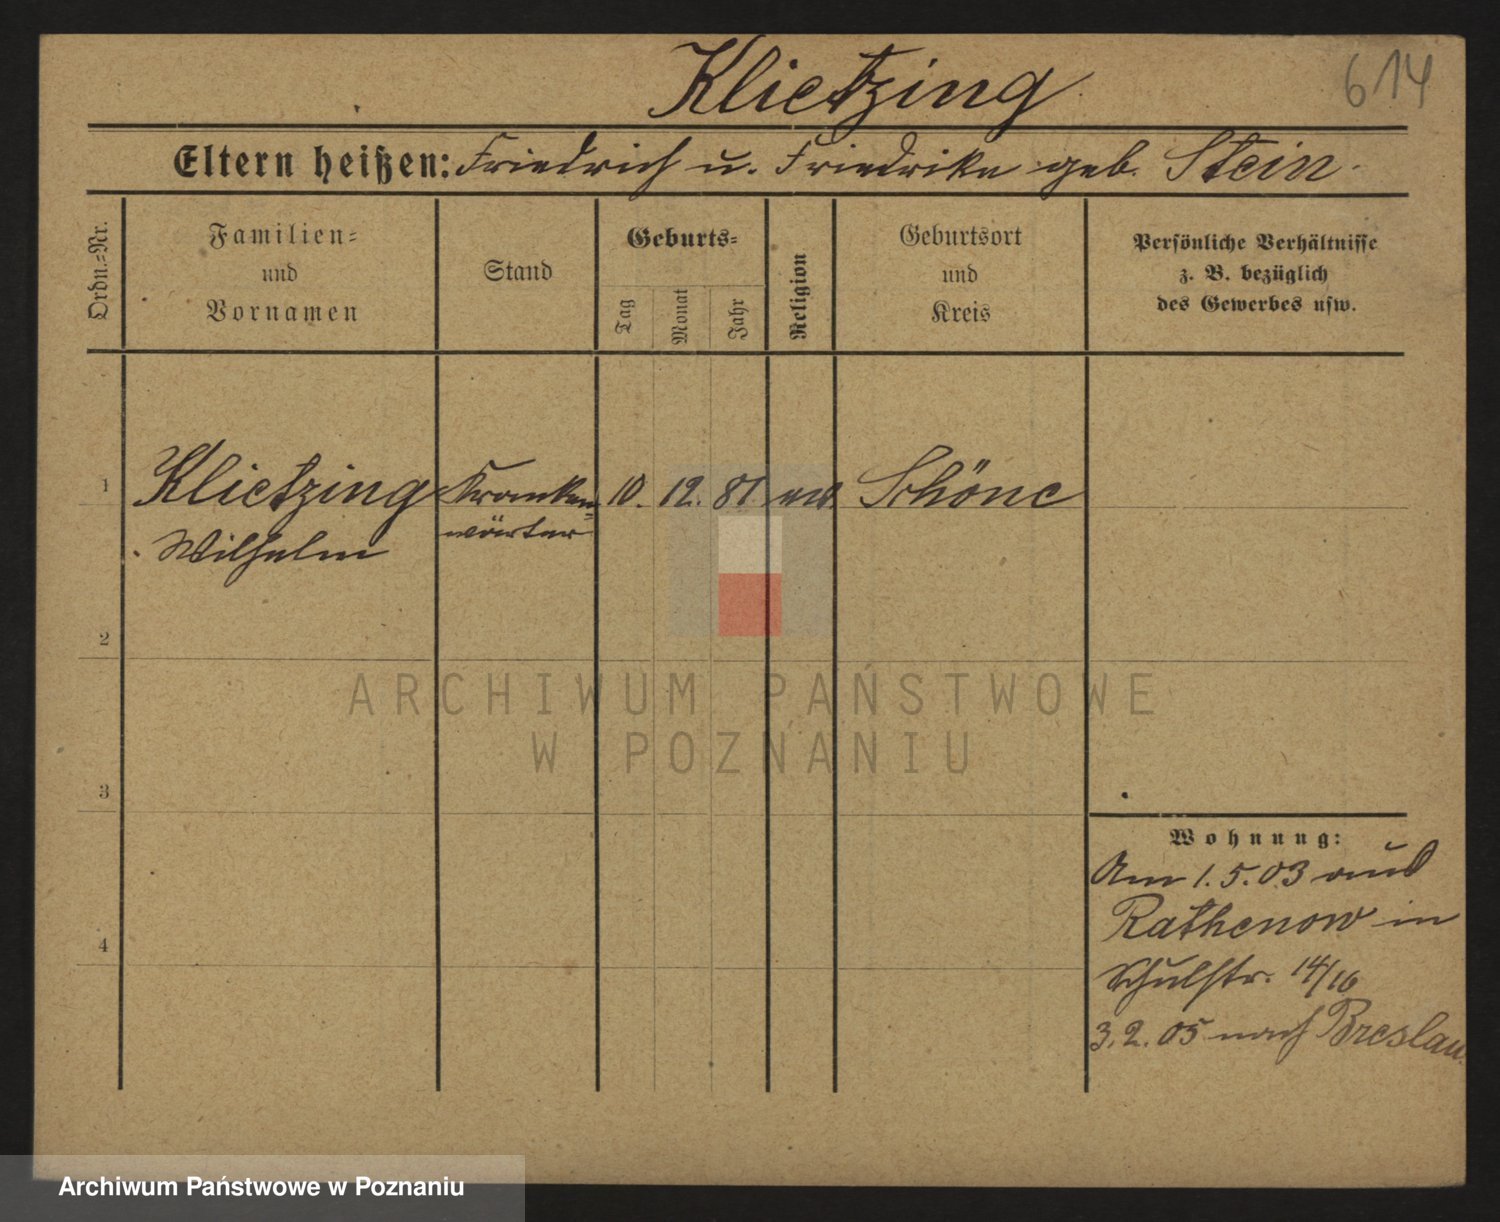 Klietzing
614
Eltern heißen: Friedrich u. Friedrike geb. Stein.
Ordn.-Nr.
Familien-
und
Vornamen
Stand
Geburts-
Tag
Monat
Jahr
Religion
Geburtsort
und
Kreis
Persönliche Verhältnisse
z. B. bezüglich
des Gewerbes usw.
1
Klietzing
Wilhelm
Kranken-
wärter
10.
12.
81
Schöne
2
3
4
Wohnung:
Am 1.5.03 aus
Rathenow in
Schulstr. 14/16
3.2.05 nach Breslau.
ARCHIWUM PAŃSTWOWE
W POZNANIU
Archiwum Państwowe w Poznaniu